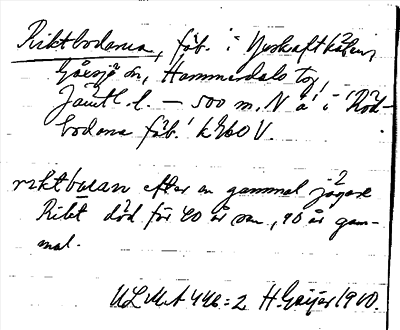 Riktbodarna, fäb. i Yxskaftkälen,
Gåxsjö sn, Hammerdals tg,
Jämtl. l. — 500 m. N å i 'Röd-
bodarna fäb.' k 960 V.
efter en gammal jägare
Rikt död för 40 år sen, 90 år gam-
mal.
ULMA 446:2 H. Geijer 1910.